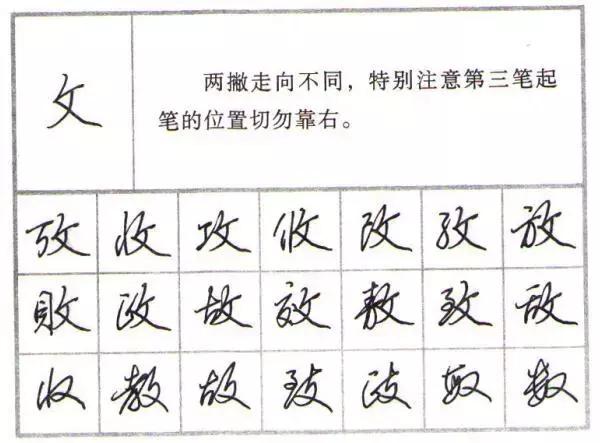 攵
两撇走向不同，特别注意第三笔起
笔的位置切勿靠右。
攷 收 攻 攸 改 孜 放
敗 政 故 效 敖 致 敌
收 教 故 数